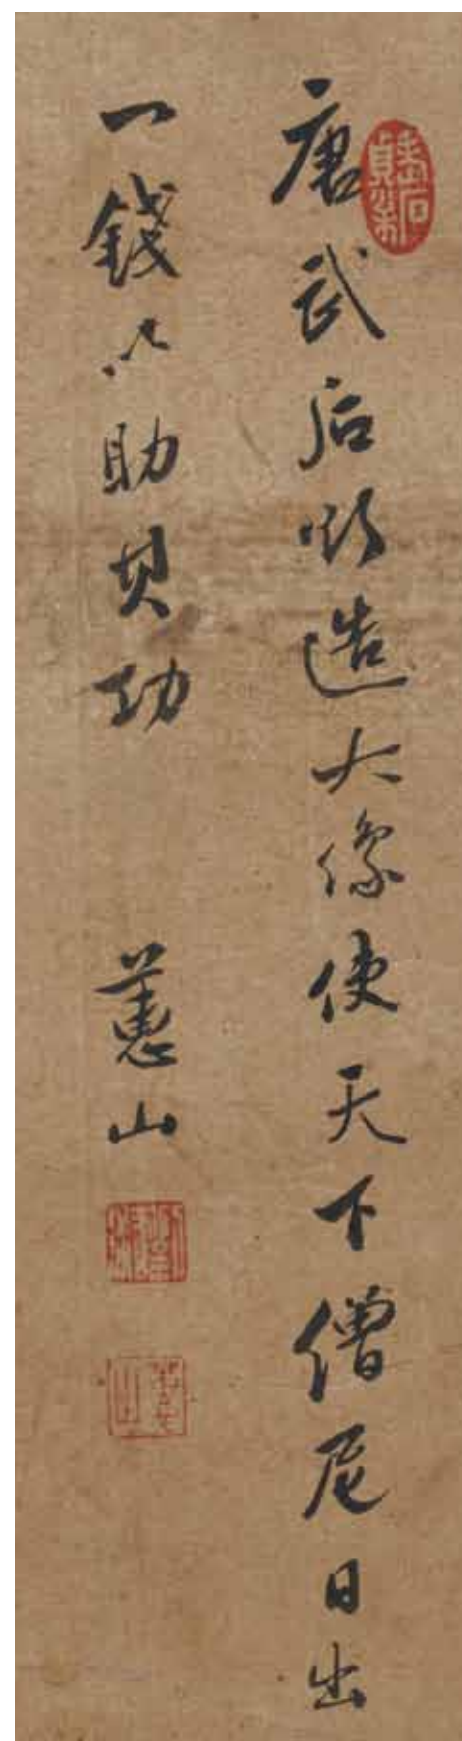 唐武后欲造大像使天下僧尼日出
一錢以助其功
憨山